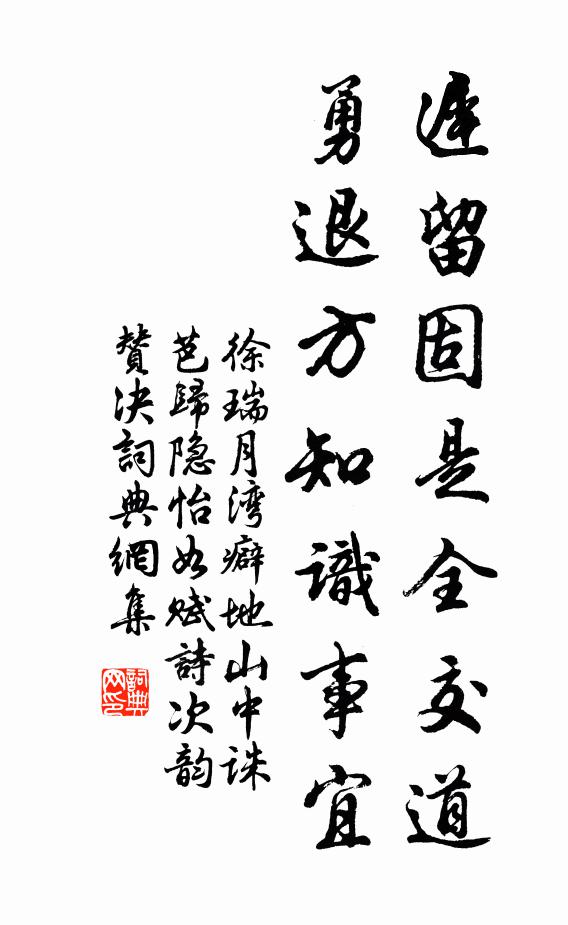 遲留固是全交道
勇退方知識事宜
徐瑞月湾癖地山中诛
芭歸隐怡如赋詩次韵
贊决詞典網集
詞典网印